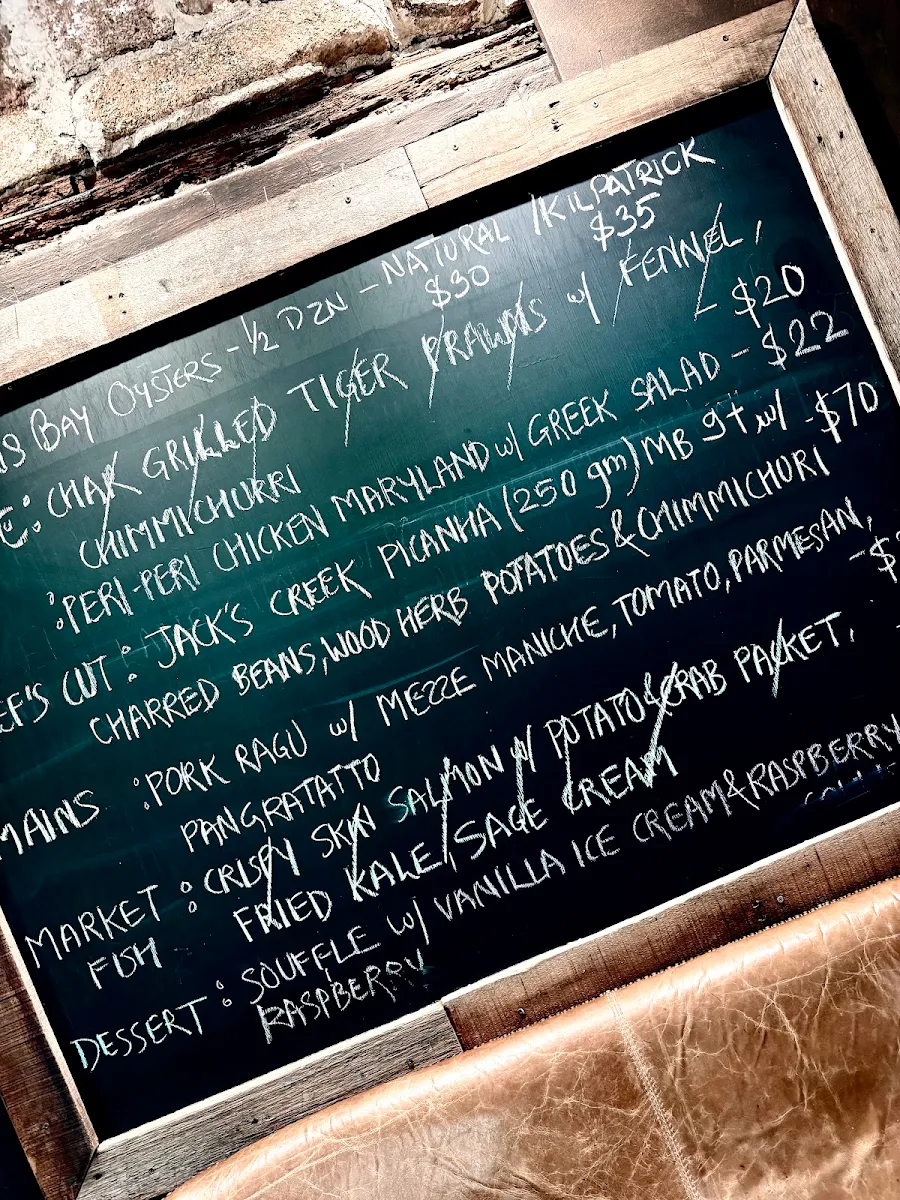 BAY OYSTERS - 1/2 DZN - NATURAL / KILPATRICK
$30 $35
: CHAR GRILLED TIGER PRAWNS w/ FENNEL,
CHIMMICHURRI - $20
: PERI-PERI CHICKEN MARYLAND w/ GREEK SALAD - $22
CUT : JACK'S CREEK PICANHA (250 gm) MB 9+ w/ - $70
CHARRED BEANS, WOOD HERB POTATOES & CHIMMICHORI
MAINS : PORK RAGU w/ MEZZE MANICHE, TOMATO, PARMESAN,
PANGRATATTO
MARKET FISH : CRISPY SKIN SALMON w/ POTATO & CRAB PACKET,
FRIED KALE, SAGE CREAM
DESSERT : SOUFFLE w/ VANILLA ICE CREAM & RASPBERRY
RASPBERRY